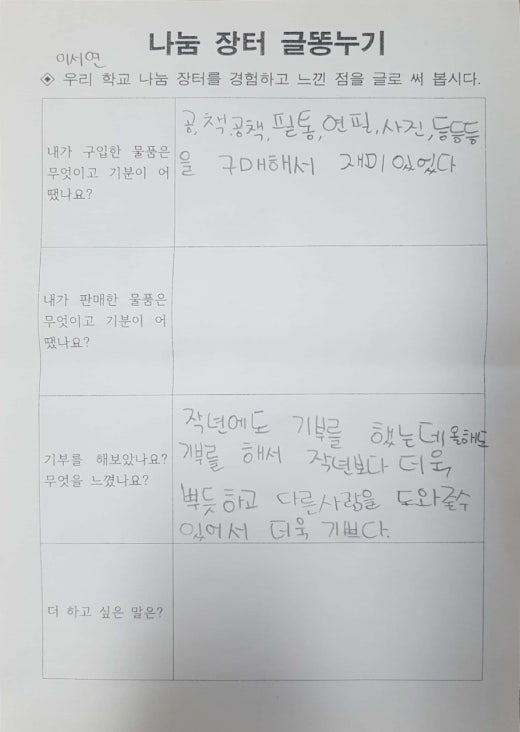 나눔 장터 글똥누기
이서연
◈ 우리 학교 나눔 장터를 경험하고 느낀 점을 글로 써 봅시다.
내가 구입한 물품은
무엇이고 기분이 어
땠나요?
공, 책, 공책, 필통, 연필, 사진, 등등등
을 구매해서 재미있었다
내가 판매한 물품은
무엇이고 기분이 어
땠나요?
기부를 해보았나요?
무엇을 느꼈나요?
작년에도 기부를 했는데 올해도
기부를 해서 작년보다 더욱
뿌듯하고 다른사람을 도와줄수
있어서 더욱 기쁘다.
더 하고 싶은 말은?